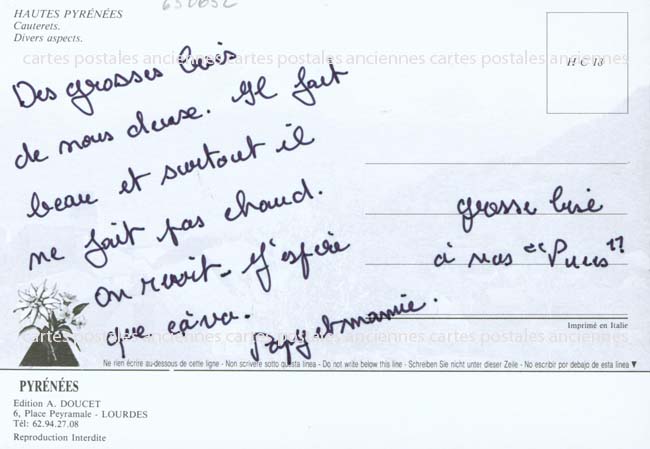 630652
HAUTES PYRÉNÉES
Cauterets.
Divers aspects.
cartes postales anciennes cartes postales anciennes cartes postales anciennes
H C 18
Des grosses bisis
de nous deuse. Il fait
beau et surtout il
ne fait pas chaud.
on revit - J'espère
que ça va.
Papy et mamie.
grosse bise
à nos "Puces"
cartes postales anciennes cartes postales anciennes cartes postales anciennes
Imprimé en Italie
Ne rien écrire au-dessous de cette ligne - Non scrivere sotto questa linea - Do not write below this line - Schreiben Sie nicht unter dieser Zeile - No escribir por debajo de esta linea ▼
PYRÉNÉES
Edition A. DOUCET
6, Place Peyramale - LOURDES
Tél: 62.94.27.08
Reproduction Interdite